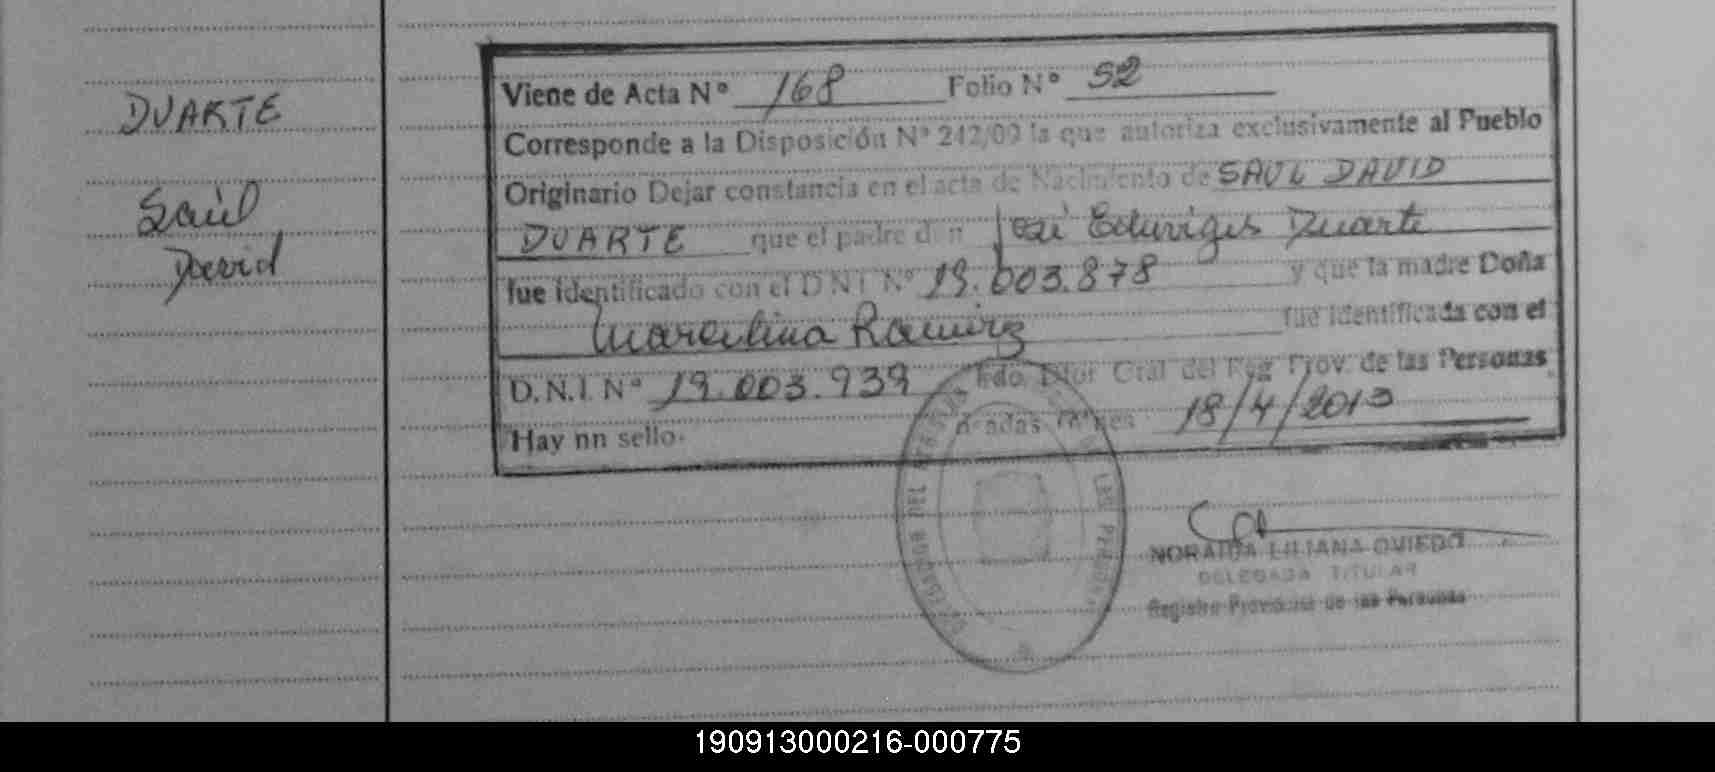 DUARTE
Saúl
David
Viene de Acta N° 168 Folio N° 52
Corresponde a la Disposición N° 242/09 la que autoriza exclusivamente al Pueblo
Originario Dejar constancia en el acta de Nacimiento de SAUL DAVID
DUARTE que el padre don José Eduvigis Duarte
fue identificado con el D N I N° 19.003.878 y que la madre Doña
Marcelina Ramirez fue identificada con el
D.N.I. N° 19.003.939 Fdo. Dtor Gral del Reg Prov. de las Personas
Hay nn sello. 18/4/2013
NORAIDA LILIANA OVIEDO
DELEGADA TITULAR
Registro Provincial de las Personas
190913000216-000775